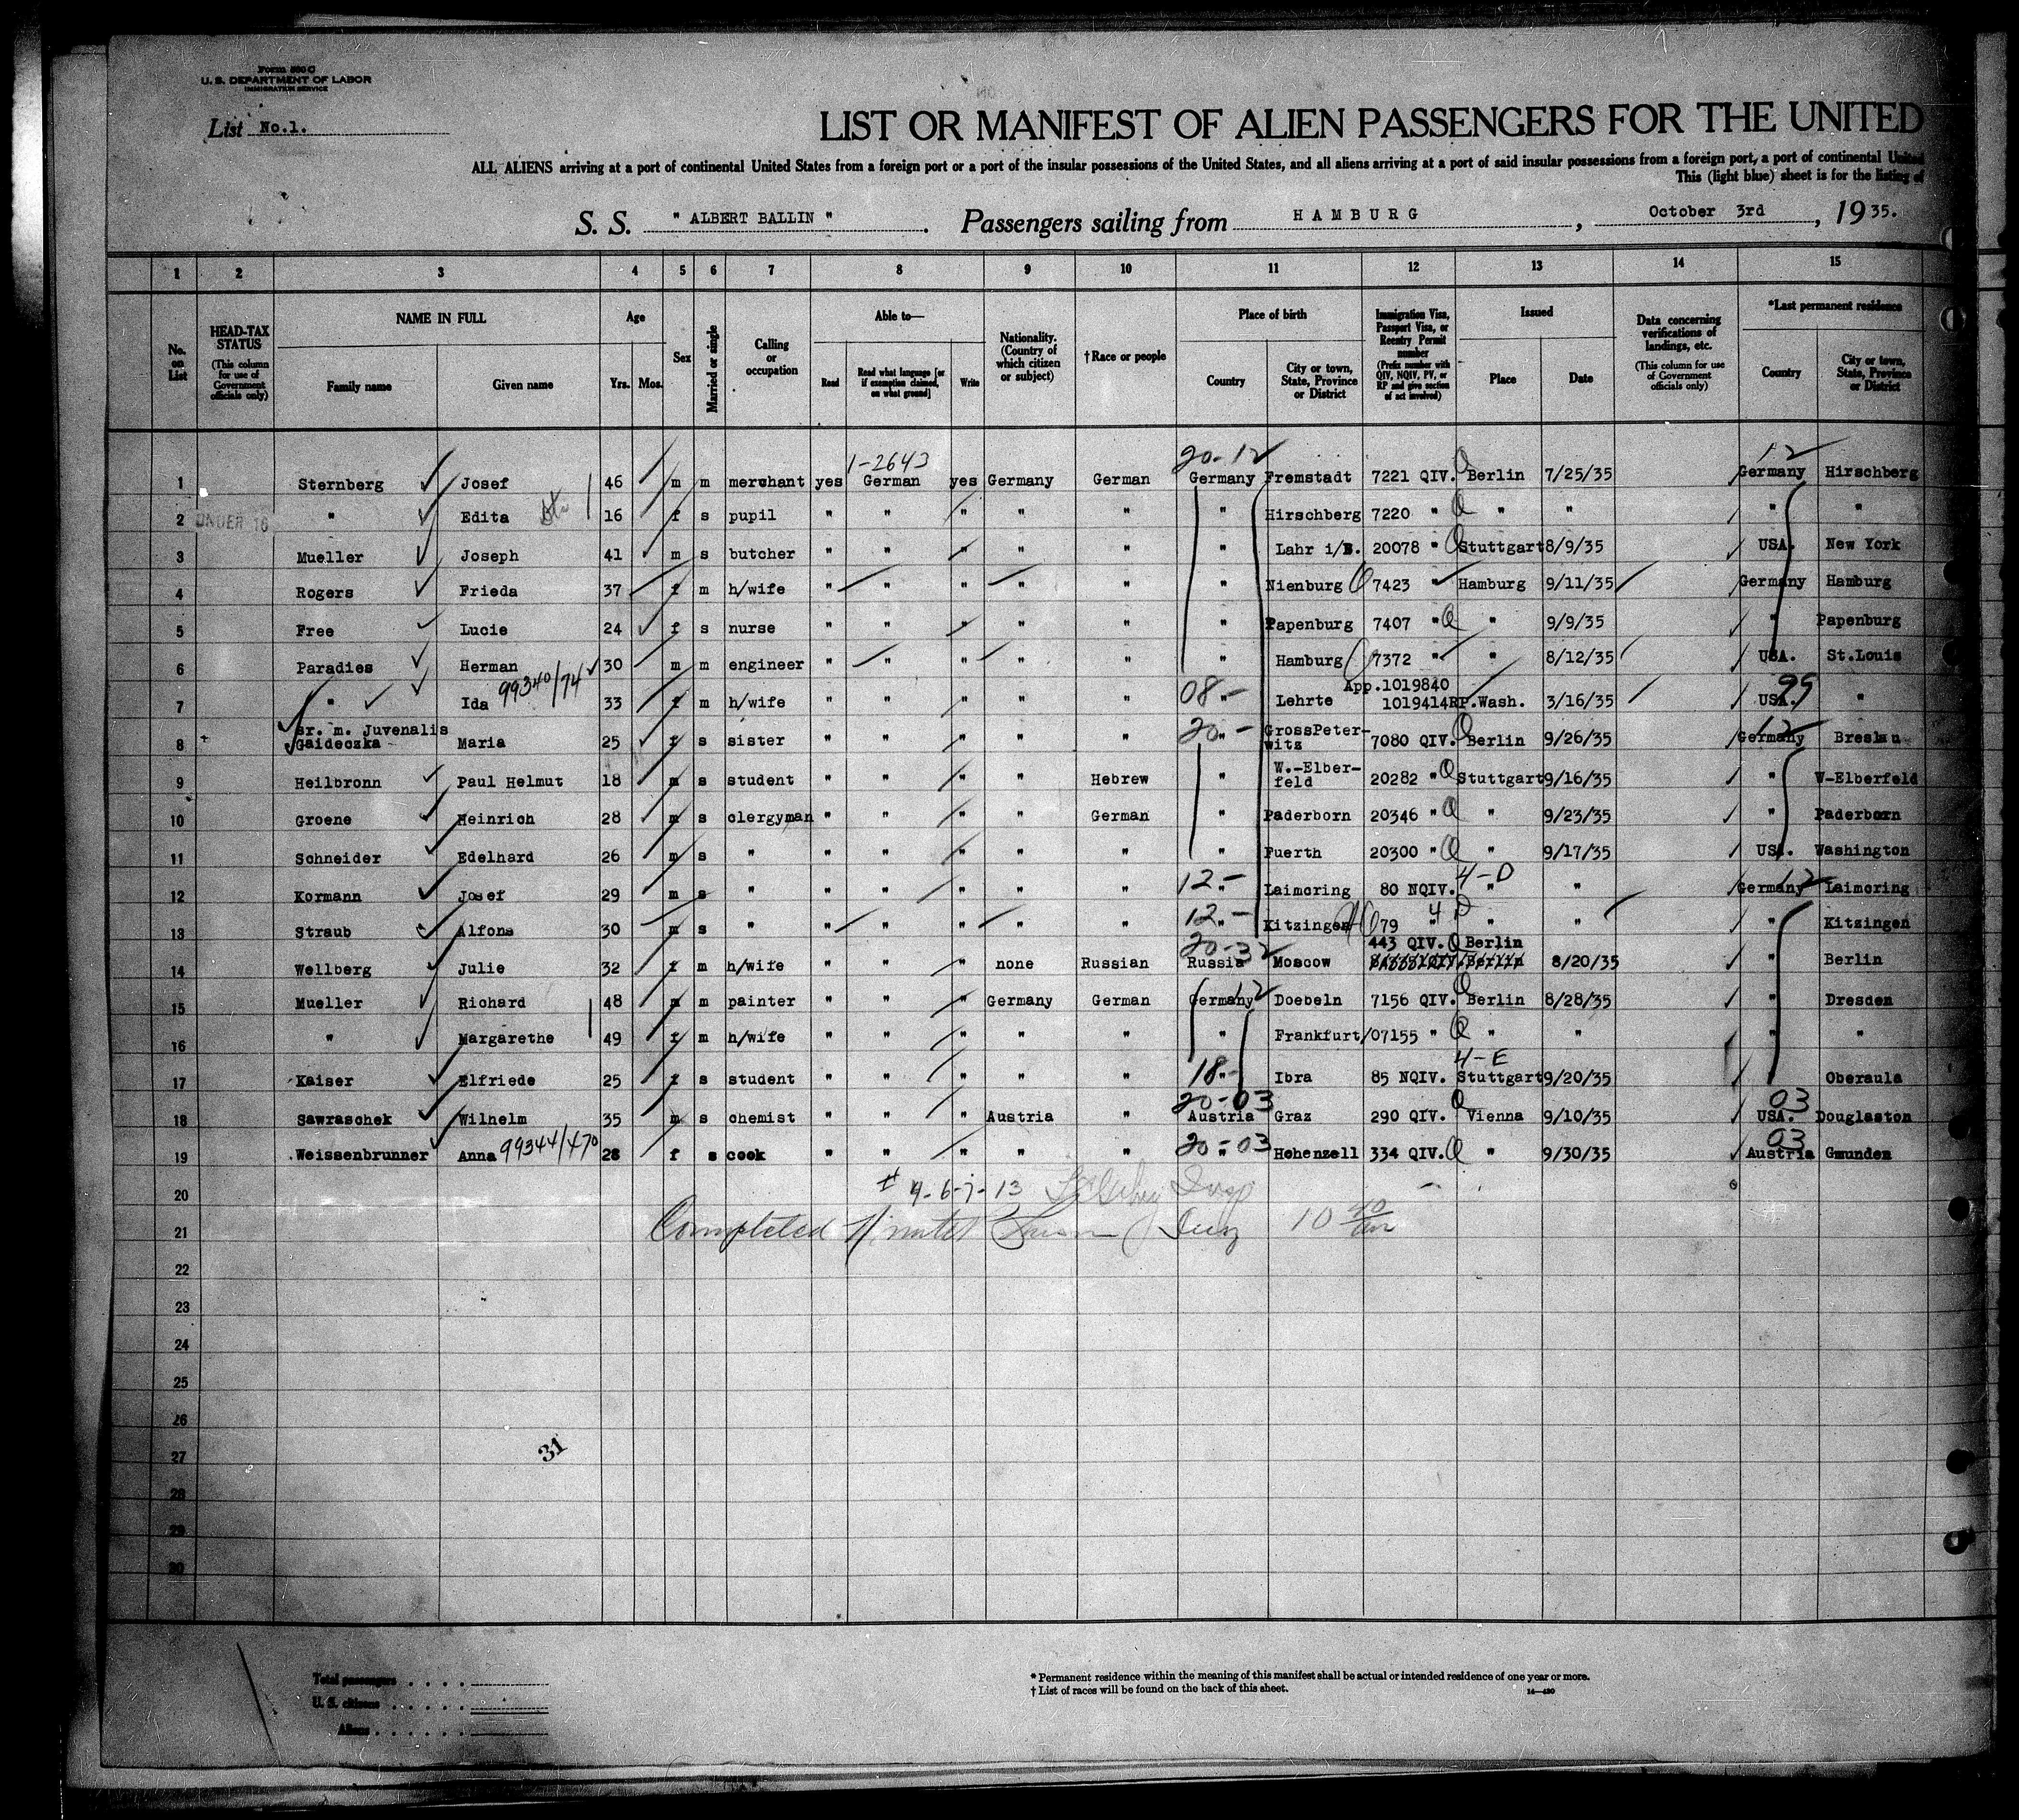 Form 500 C
U. S. DEPARTMENT OF LABOR
IMMIGRATION SERVICE
List No.1.
LIST OR MANIFEST OF ALIEN PASSENGERS FOR THE UNITED
ALL ALIENS arriving at a port of continental United States from a foreign port or a port of the insular possessions of the United States, and all aliens arriving at a port of said insular possessions from a foreign port, a port of continental United
This (light blue) sheet is for the listing of
S. S. " ALBERT BALLIN " . Passengers sailing from HAMBURG , October 3rd , 1935.
1 2 3 4 5 6 7 8 9 10 11 12 13 14 15
No. on List
HEAD-TAX STATUS (This column for use of Government officials only)
NAME IN FULL Family name Given name
Age Yrs. Mos.
Sex
Married or single
Calling or occupation
Able to— Read Read what language [or if exemption claimed, on what ground] Write
Nationality. (Country of which citizen or subject)
†Race or people
Place of birth Country City or town, State, Province or District
Immigration Visa, Passport Visa, or Reentry Permit number (Prefix number with QIV, NQIV, PV, or RP and give section of act involved)
Issued Place Date
Data concerning verifications of landings, etc. (This column for use of Government officials only)
*Last permanent residence Country City or town, State, Province or District
1-2643 20-12 12
1 Sternberg Josef 46 m m merchant yes German yes Germany German Germany Fremstadt 7221 QIV. Berlin 7/25/35 Germany Hirschberg
2 UNDER 16 " Edita 16 f s pupil " " " " " " Hirschberg 7220 " " " " "
3 Mueller Joseph 41 m s butcher " " " " " " Lahr i/B. 20078 " Stuttgart 8/9/35 USA. New York
4 Rogers Frieda 37 f m h/wife " " " " " " Nienburg 7423 Hamburg 9/11/35 Germany Hamburg
5 Free Lucie 24 f s nurse " " " " " " Papenburg 7407 " " 9/9/35 " Papenburg
6 Paradies Herman 30 m m engineer " " " " " " Hamburg 7372 " " 8/12/35 USA. St.Louis
99340/74 08- App.1019840 99
7 " Ida 33 f m h/wife " " " " " " Lehrte 1019414RP. Wash. 3/16/35 USA. "
sr. m. Juvenalis 20- GrossPeter- 12
8 Gaideczka Maria 25 f s sister " " " " " " witz 7080 QIV. Berlin 9/26/35 Germany Breslau
9 Heilbronn Paul Helmut 18 m s student " " " " Hebrew " W.-Elber-feld 20282 " Stuttgart 9/16/35 " W-Elberfeld
10 Groene Heinrich 28 m s clergyman " " " " German " Paderborn 20346 " " 9/23/35 " Paderborn
11 Schneider Edelhard 26 m s " " " " " " " Fuerth 20300 " " 9/17/35 USA. Washington
12- 4-D 12
12 Kormann Josef 29 m s " " " " " " " Laimering 80 NQIV. " " Germany Laimering
12- 4 D
13 Straub Alfons 30 m s " " " " " " " Kitzingen 79 " " " " Kitzingen
20-32 443 QIV. Berlin
14 Wellberg Julie 32 f m h/wife " " " none Russian Russia Moscow 8/20/35 " Berlin
12
15 Mueller Richard 48 m m painter " " " Germany German Germany Doebeln 7156 QIV. Berlin 8/28/35 " Dresden
16 " Margarethe 49 f m h/wife " " " " " " Frankfurt/O 7155 " " " " "
18- 4-E
17 Kaiser Elfriede 25 f s student " " " " " " Ibra 85 NQIV. Stuttgart 9/20/35 Oberaula
20-03 03
18 Sawraschek Wilhelm 35 m s chemist " " " Austria " Austria Graz 290 QIV. Vienna 9/10/35 USA. Douglaston
99344/470 20-03 03
19 Weissenbrunner Anna 28 f s cook " " " " " " Hohenzell 334 QIV. " 9/30/35 Austria Gmunden
20 4-6-7-13
21 Completed 10 40/am
22
23
24
25
26
27
28
29
30
31
Total passengers
U. S. citizens
Aliens
* Permanent residence within the meaning of this manifest shall be actual or intended residence of one year or more.
† List of races will be found on the back of this sheet.
14—420